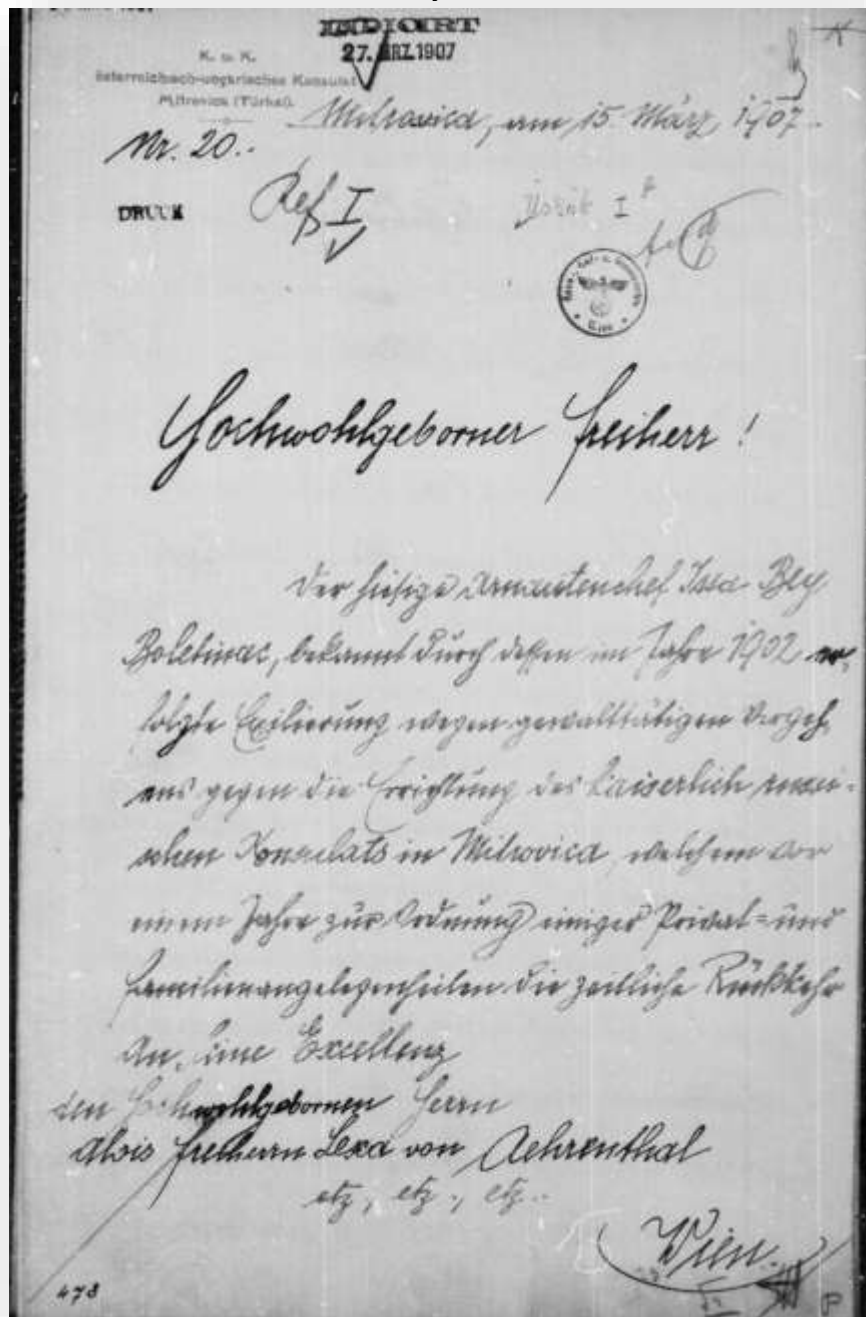 EXPEDIERT
27. MRZ. 1907
K. u. K.
österreichisch-ungarisches Konsulat
Mitrovica (Türkei).
Mitrovica, am 15. März 1907.
Nr. 20..
DRUCK
Ref I
Üsküb I
Hochwohlgeborner Freiherr!
Der hiesige Arnautenchef Issa Bey
Boletinac, bekannt durch dessen im Jahre 1902 er-
folgte Exilierung wegen gewalttätigen Vorgeh-
ens gegen die Errichtung des kaiserlich russi=
schen Konsulats in Mitrovica, welchem vor
einem Jahre zur Ordnung einiger Privat= und
Familienangelegenheiten die zeitliche Rückkehr
An Seine Excellenz
den Hochwohlgebornen Herrn
Alois Freiherrn Lexa von Aehrenthal
etz., etz., etz..
Wien.
478
P